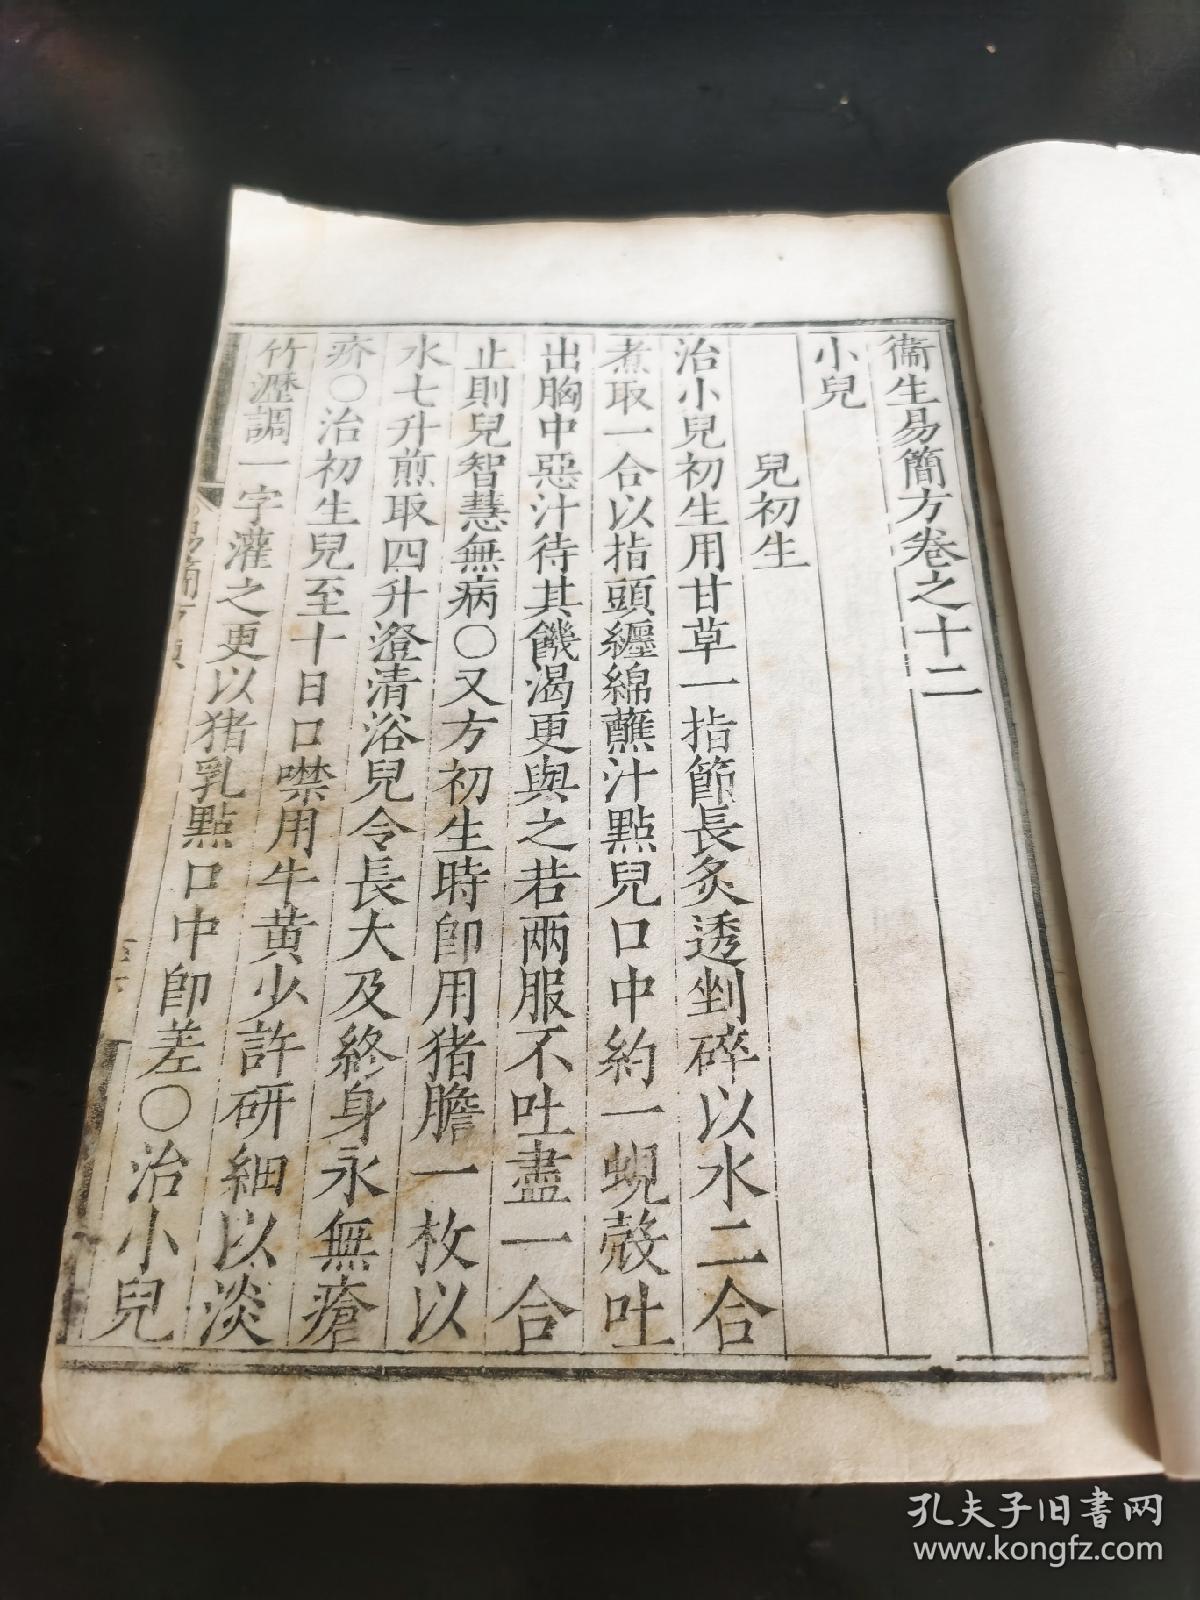 衞生易簡方卷之十二
小兒
兒初生
治小兒初生用甘草一指節長炙透剉碎以水二合
煮取一合以指頭纏綿蘸汁點兒口中約一蜆殼吐
出胸中惡汁待其饑渴更與之若兩服不吐盡一合
止則兒智慧無病○又方初生時卽用猪膽一枚以
水七升煎取四升澄清浴兒令長大及終身永無瘡
疥○治初生兒至十日口噤用牛黃少許研細以淡
竹瀝調一字灌之更以猪乳點口中卽差○治小兒
孔夫子旧书网
www.kongfz.com